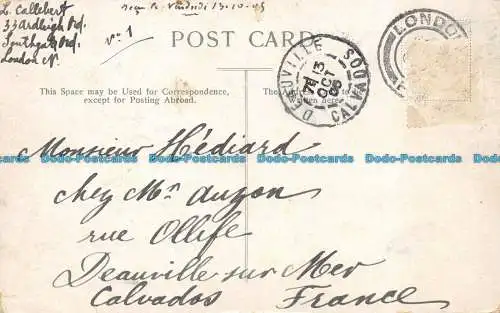 L. Callebert
33 Ardleigh Rd.
Southgate Rd.
London N.
reçu le Vendredi 13-10-05
No 1
POST CARD
This Space may be Used for Correspondence,
except for Posting Abroad.
The Address to be
Written here.
DEAUVILLE
13
OCT
05
CALVADOS
LONDON
Monsieur Hédiard
chez Mr Auzon
rue Olliffe
Deauville sur Mer
Calvados France
Dodo-Postcards Dodo-Postcards Dodo-Postcards Dodo-Postcards
Dodo-Postcards Dodo-Postcards Dodo-Postcards Dodo-Postcards